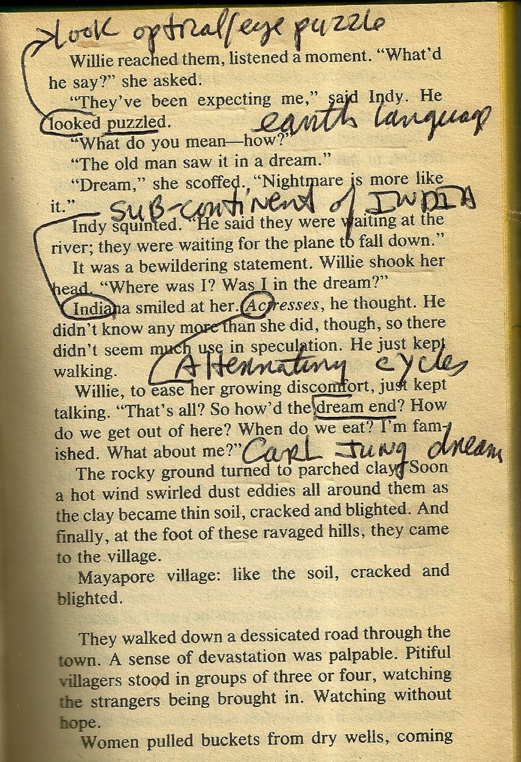 look optical/eye puzzle
Willie reached them, listened a moment. "What'd
he say?" she asked.
"They've been expecting me," said Indy. He
looked puzzled.
earth language
"What do you mean—how?"
"The old man saw it in a dream."
"Dream," she scoffed. "Nightmare is more like
it."
SUB-continent of INDIA
Indy squinted. "He said they were waiting at the
river; they were waiting for the plane to fall down."
It was a bewildering statement. Willie shook her
head. "Where was I? Was I in the dream?"
Indiana smiled at her. Actresses, he thought. He
didn't know any more than she did, though, so there
didn't seem much use in speculation. He just kept
walking.
Alternating cycles
Willie, to ease her growing discomfort, just kept
talking. "That's all? So how'd the dream end? How
do we get out of here? When do we eat? I'm fam-
ished. What about me?"
CARL Jung dream
The rocky ground turned to parched clay. Soon
a hot wind swirled dust eddies all around them as
the clay became thin soil, cracked and blighted. And
finally, at the foot of these ravaged hills, they came
to the village.
Mayapore village: like the soil, cracked and
blighted.
They walked down a dessicated road through the
town. A sense of devastation was palpable. Pitiful
villagers stood in groups of three or four, watching
the strangers being brought in. Watching without
hope.
Women pulled buckets from dry wells, coming